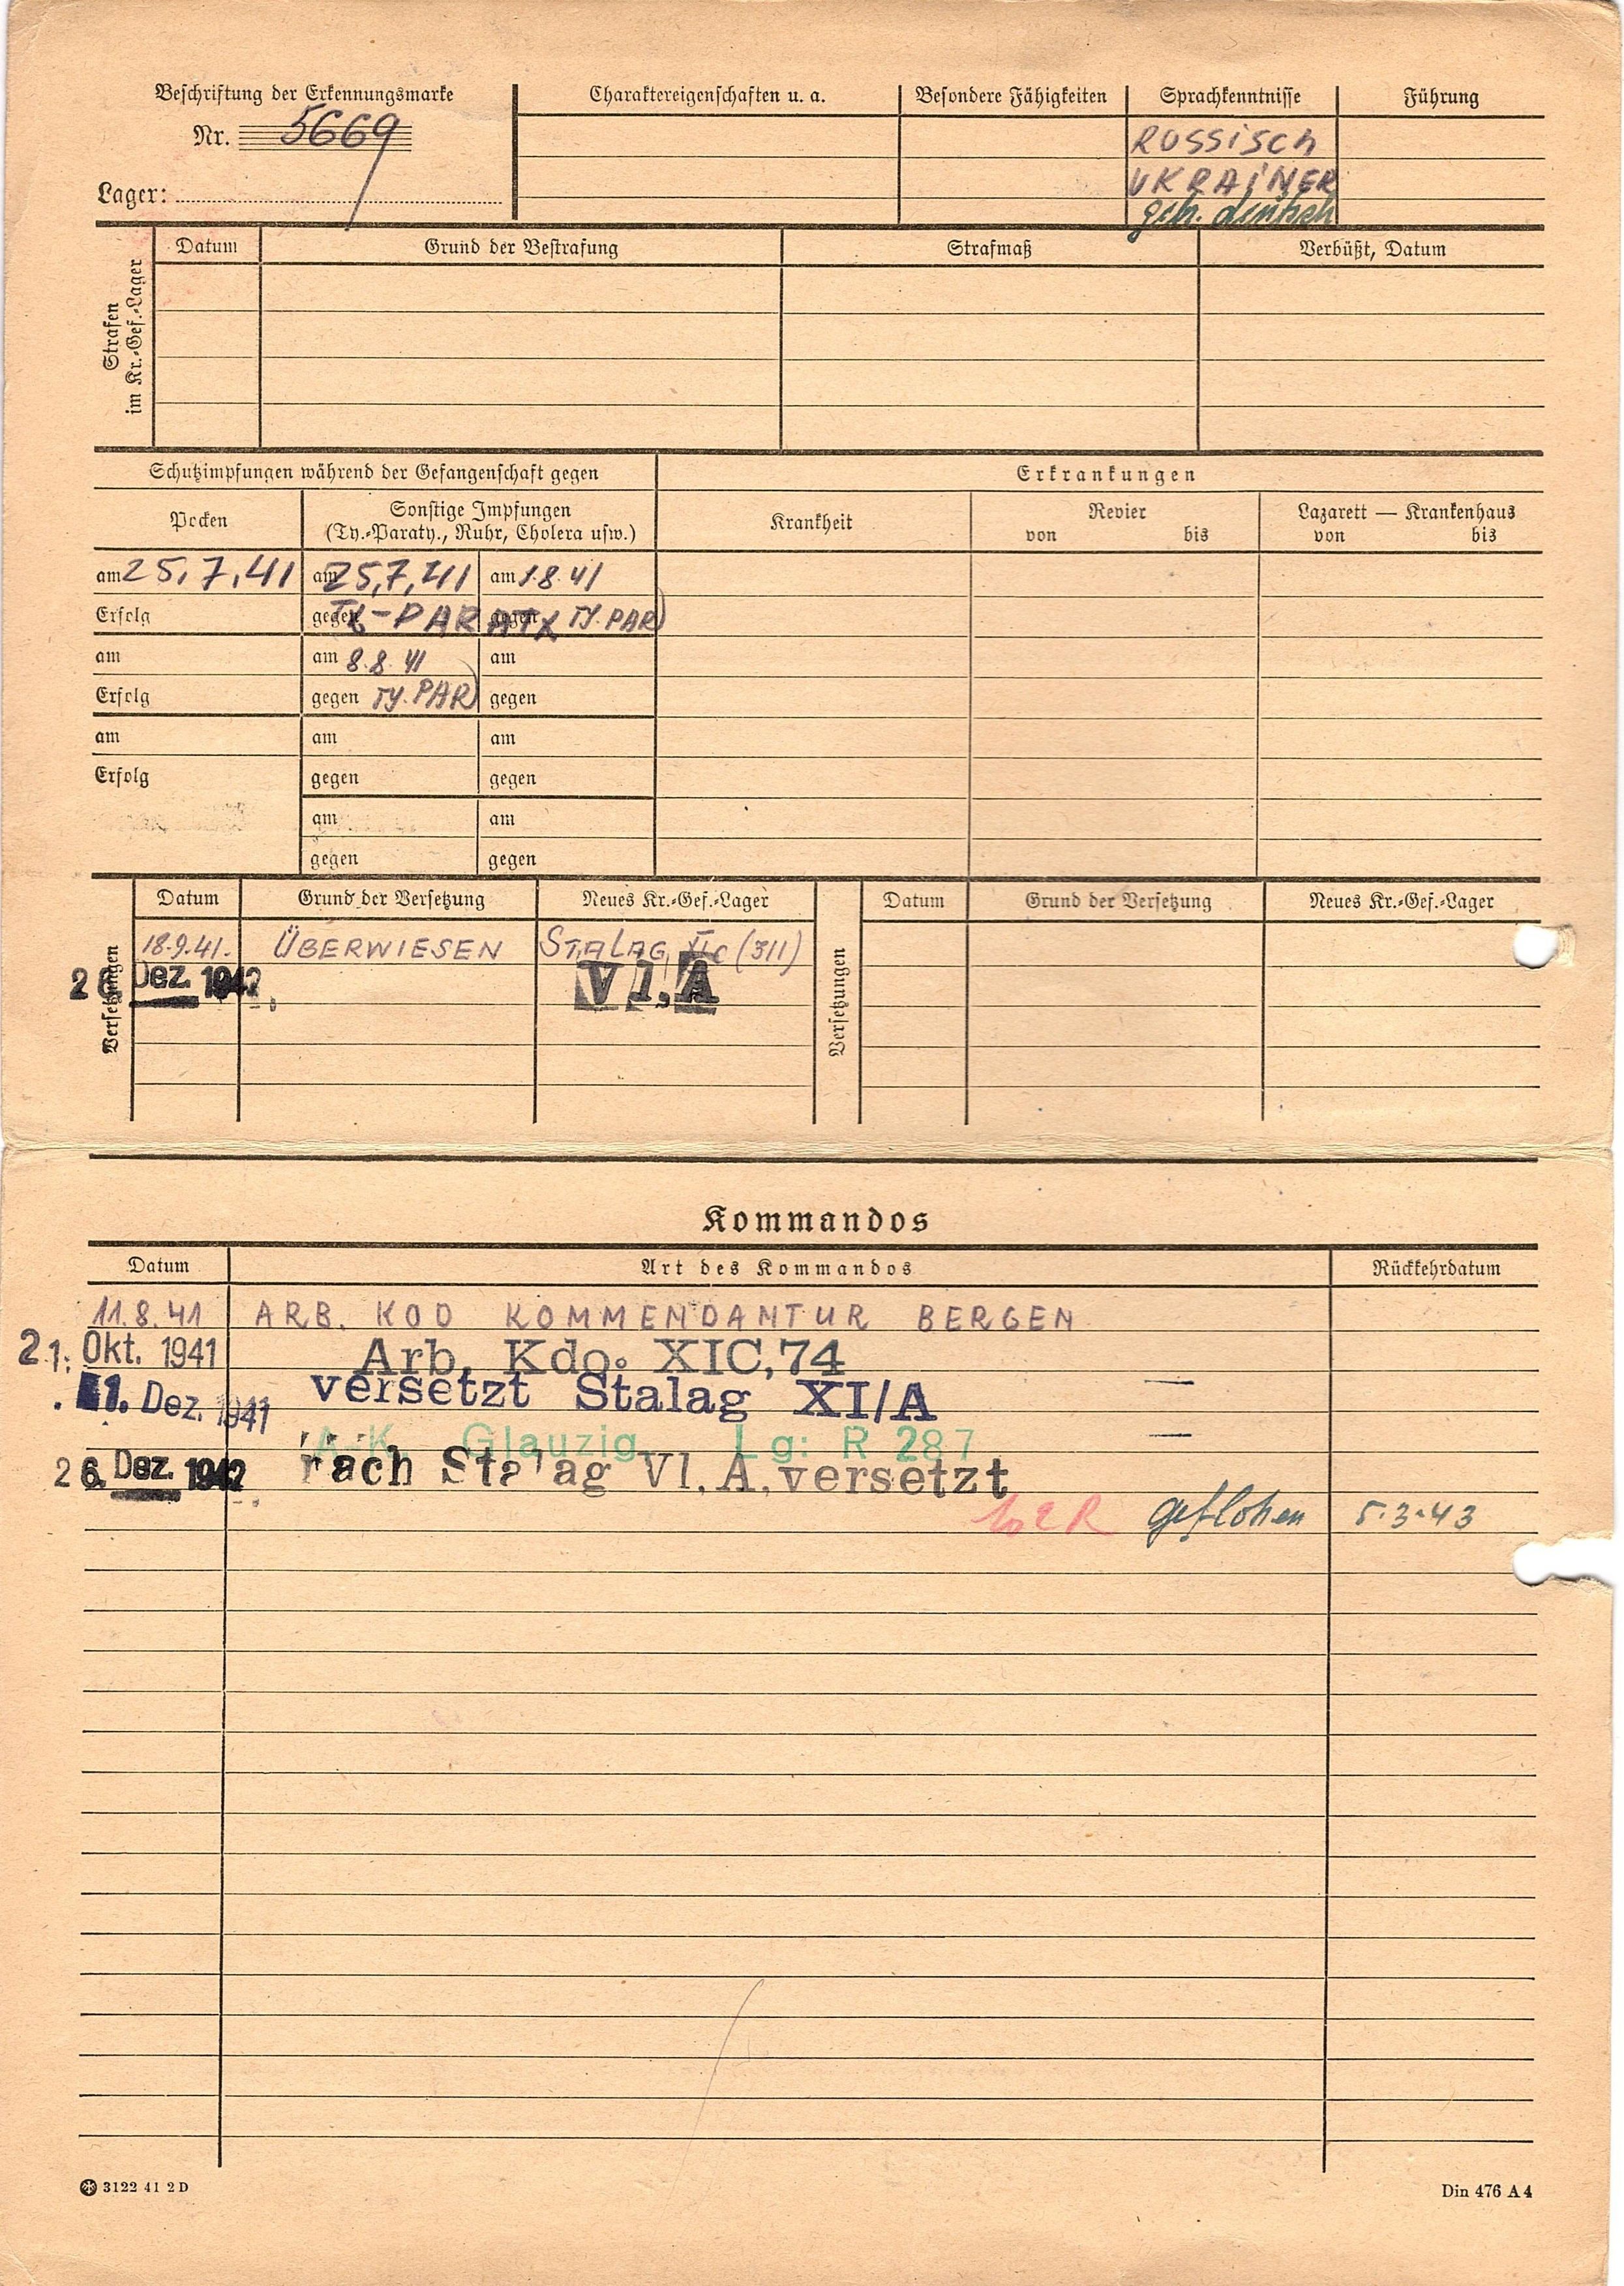 Beschriftung der Erkennungsmarke
Nr. 5669
Lager:
Charaktereigenschaften u. a.
Besondere Fähigkeiten
Sprachkenntnisse
RUSSISCH
UKRAINER
Führung
Strafen im Kr.-Gef.-Lager
Datum Grund der Bestrafung Strafmaß Verbüßt, Datum
Schutzimpfungen während der Gefangenschaft gegen
Erkrankungen
Pocken
Sonstige Impfungen
(Ty.-Paraty., Ruhr, Cholera usw.)
Krankheit
Revier
von bis
Lazarett — Krankenhaus
von bis
am 25,7,41 am 25,7,41 am 1.8.41
Erfolg gegen TY-PARATY gegen TY.PAR)
am am 8.8.41 am
Erfolg gegen TY.PAR) gegen
am am am
Erfolg gegen gegen
am am
gegen gegen
Versetzungen
Datum Grund der Versetzung Neues Kr.-Gef.-Lager
18.9.41. ÜBERWIESEN STALAG XIC (311)
26. Dez. 1942 VI,A
Versetzungen
Datum Grund der Versetzung Neues Kr.-Gef.-Lager
Kommandos
Datum Art des Kommandos Rückkehrdatum
11.8.41 ARB. KOD KOMMENDANTUR BERGEN
21. Okt. 1941 Arb. Kdo. XIC,74
1. Dez. 1941 versetzt Stalag XI/A —
A.-K. Glauzig Lg: R 287 —
26. Dez. 1942 nach Stalag VI.A. versetzt
geflohen 5.3.43
3122 41 2 D
Din 476 A 4